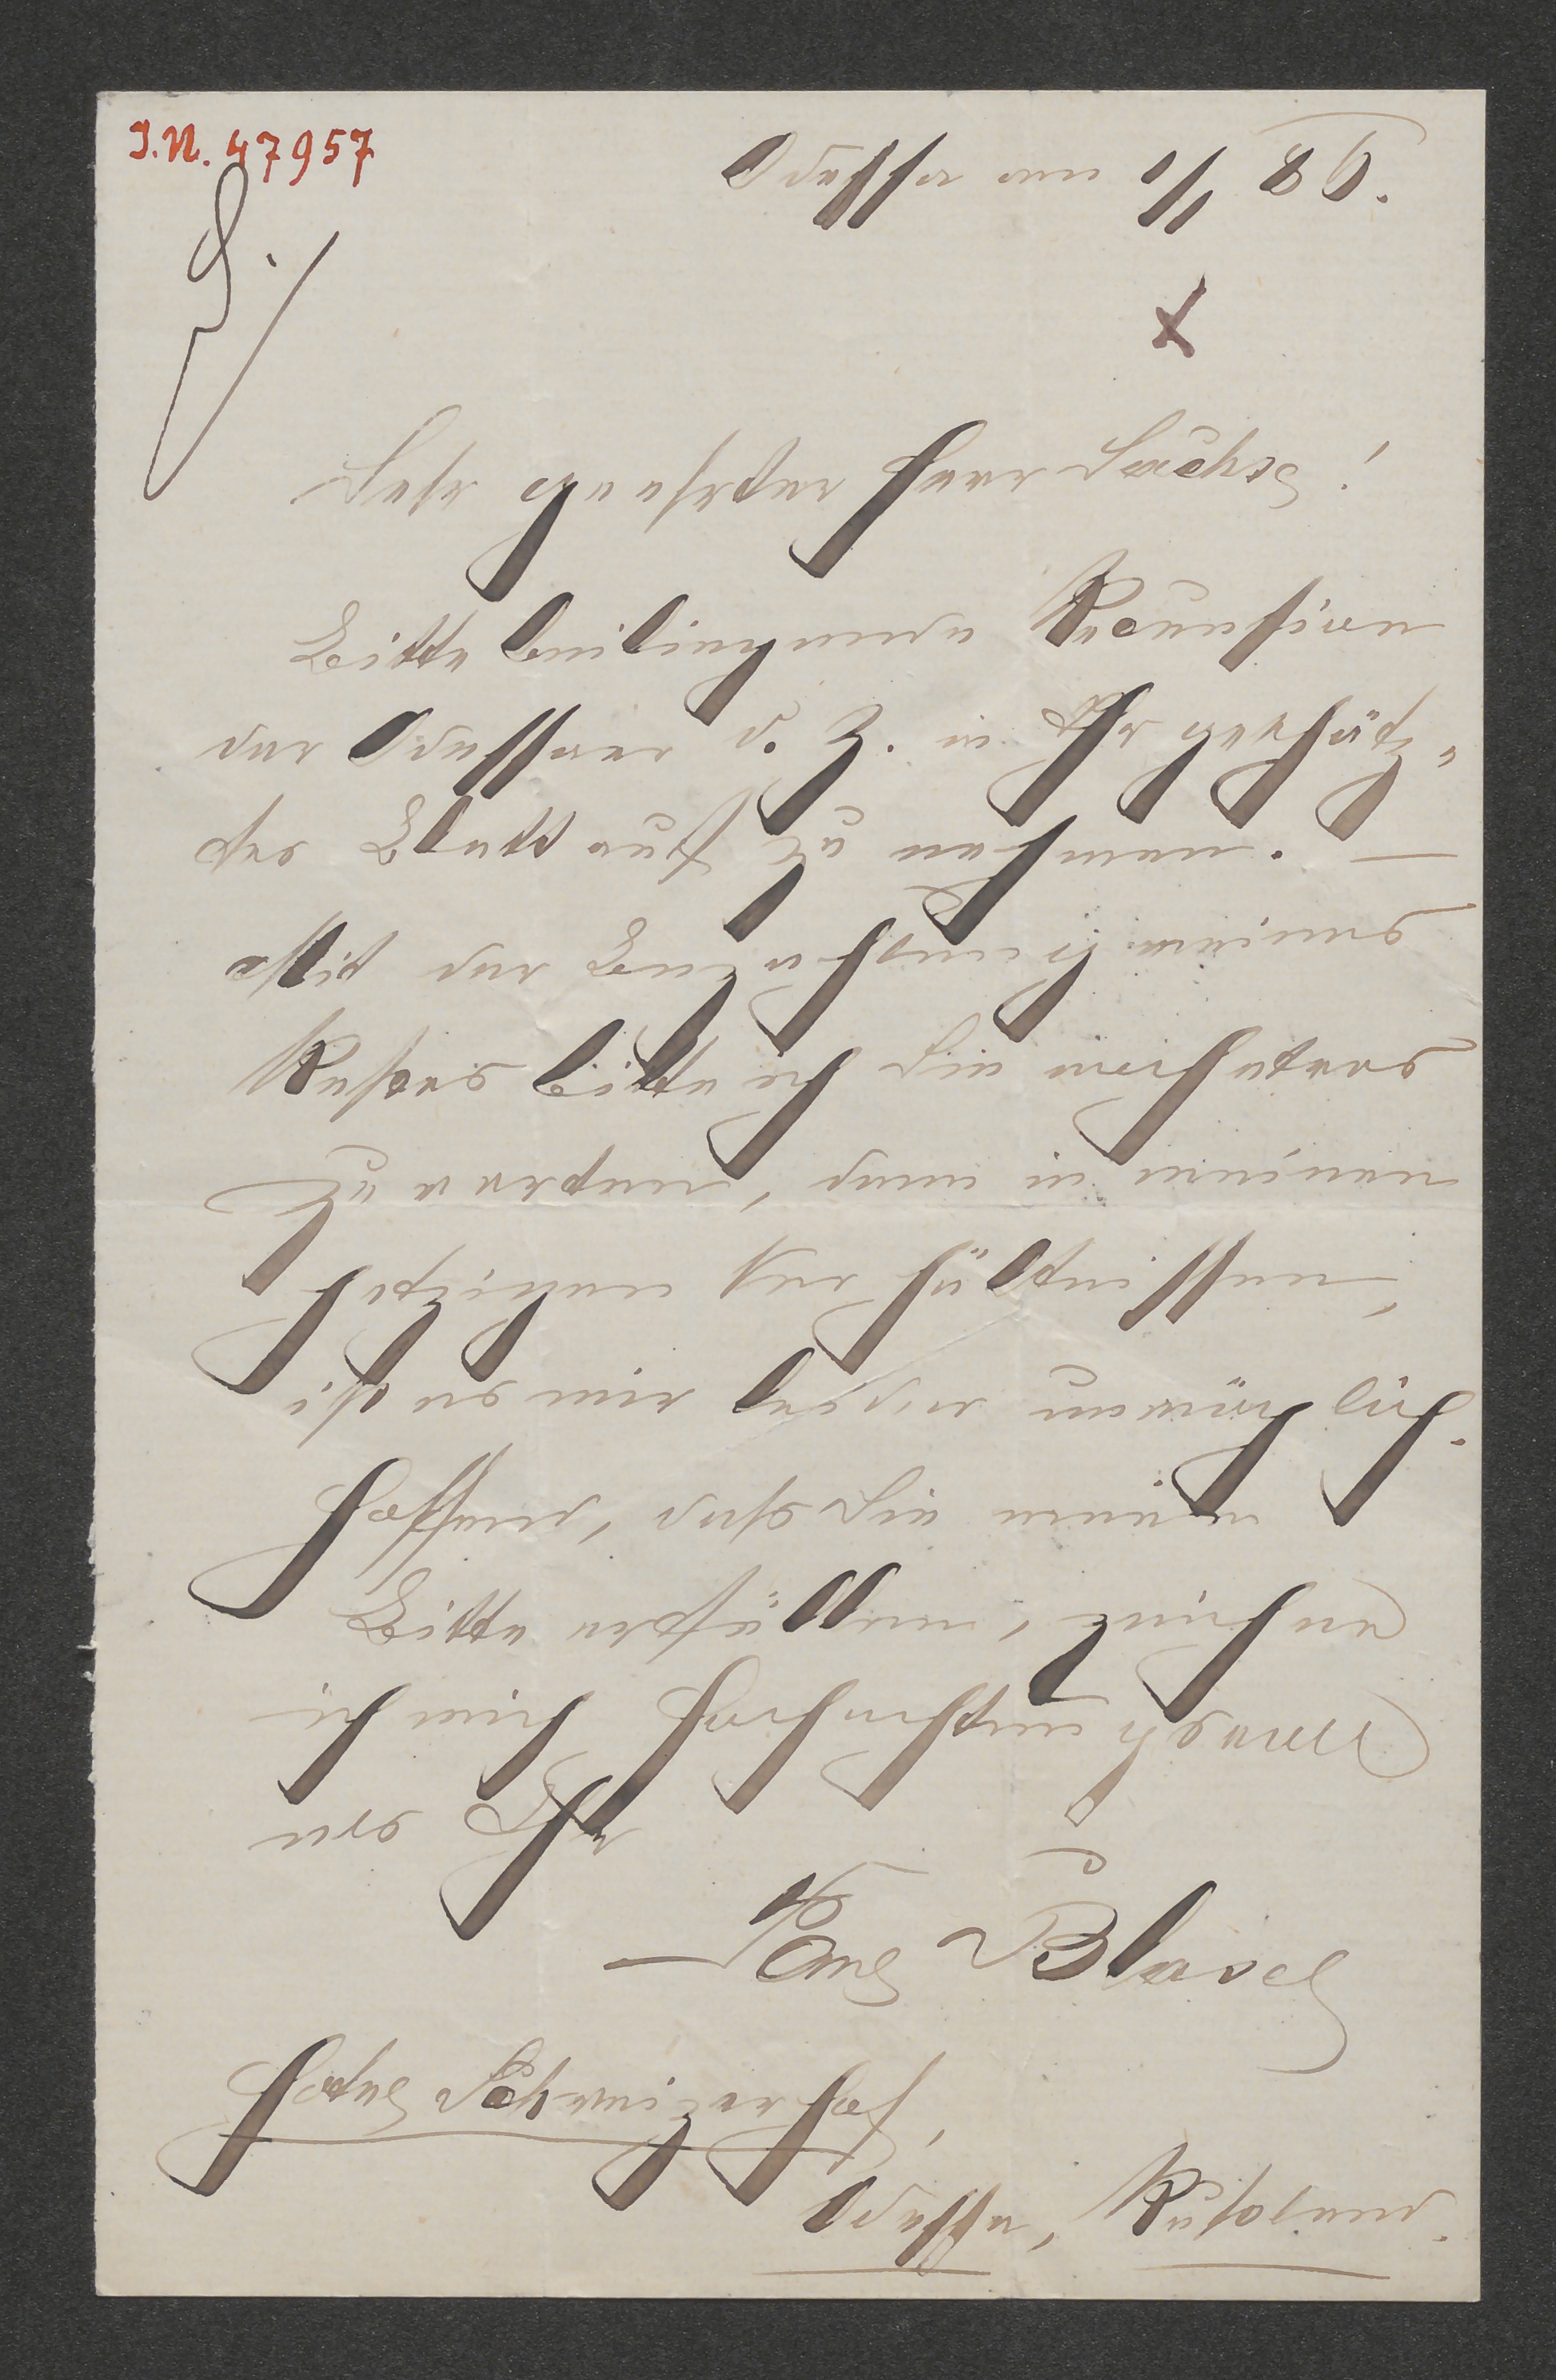 I.N. 47957
Odessa am 1/1 86.
Sehr geehrter Herr Sachse!
Bitte beiliegende Recension
der Odessaer d. Z. in Ihr geschätz-
tes Blatt auf zu nehmen. —
Mit der Bezahlung meines
Restes bitte ich Sie
zu warten, denn in meinen
jetzigen Verhältnissen,
ist es mir leider unmöglich.
Hoffend, dass Sie meine
Bitte erfüllen, zeichne
ich mich Hochachtungsvoll
als Ihr
Paul Blasel
Hotel Schweizerhof,
Odessa, Russland.